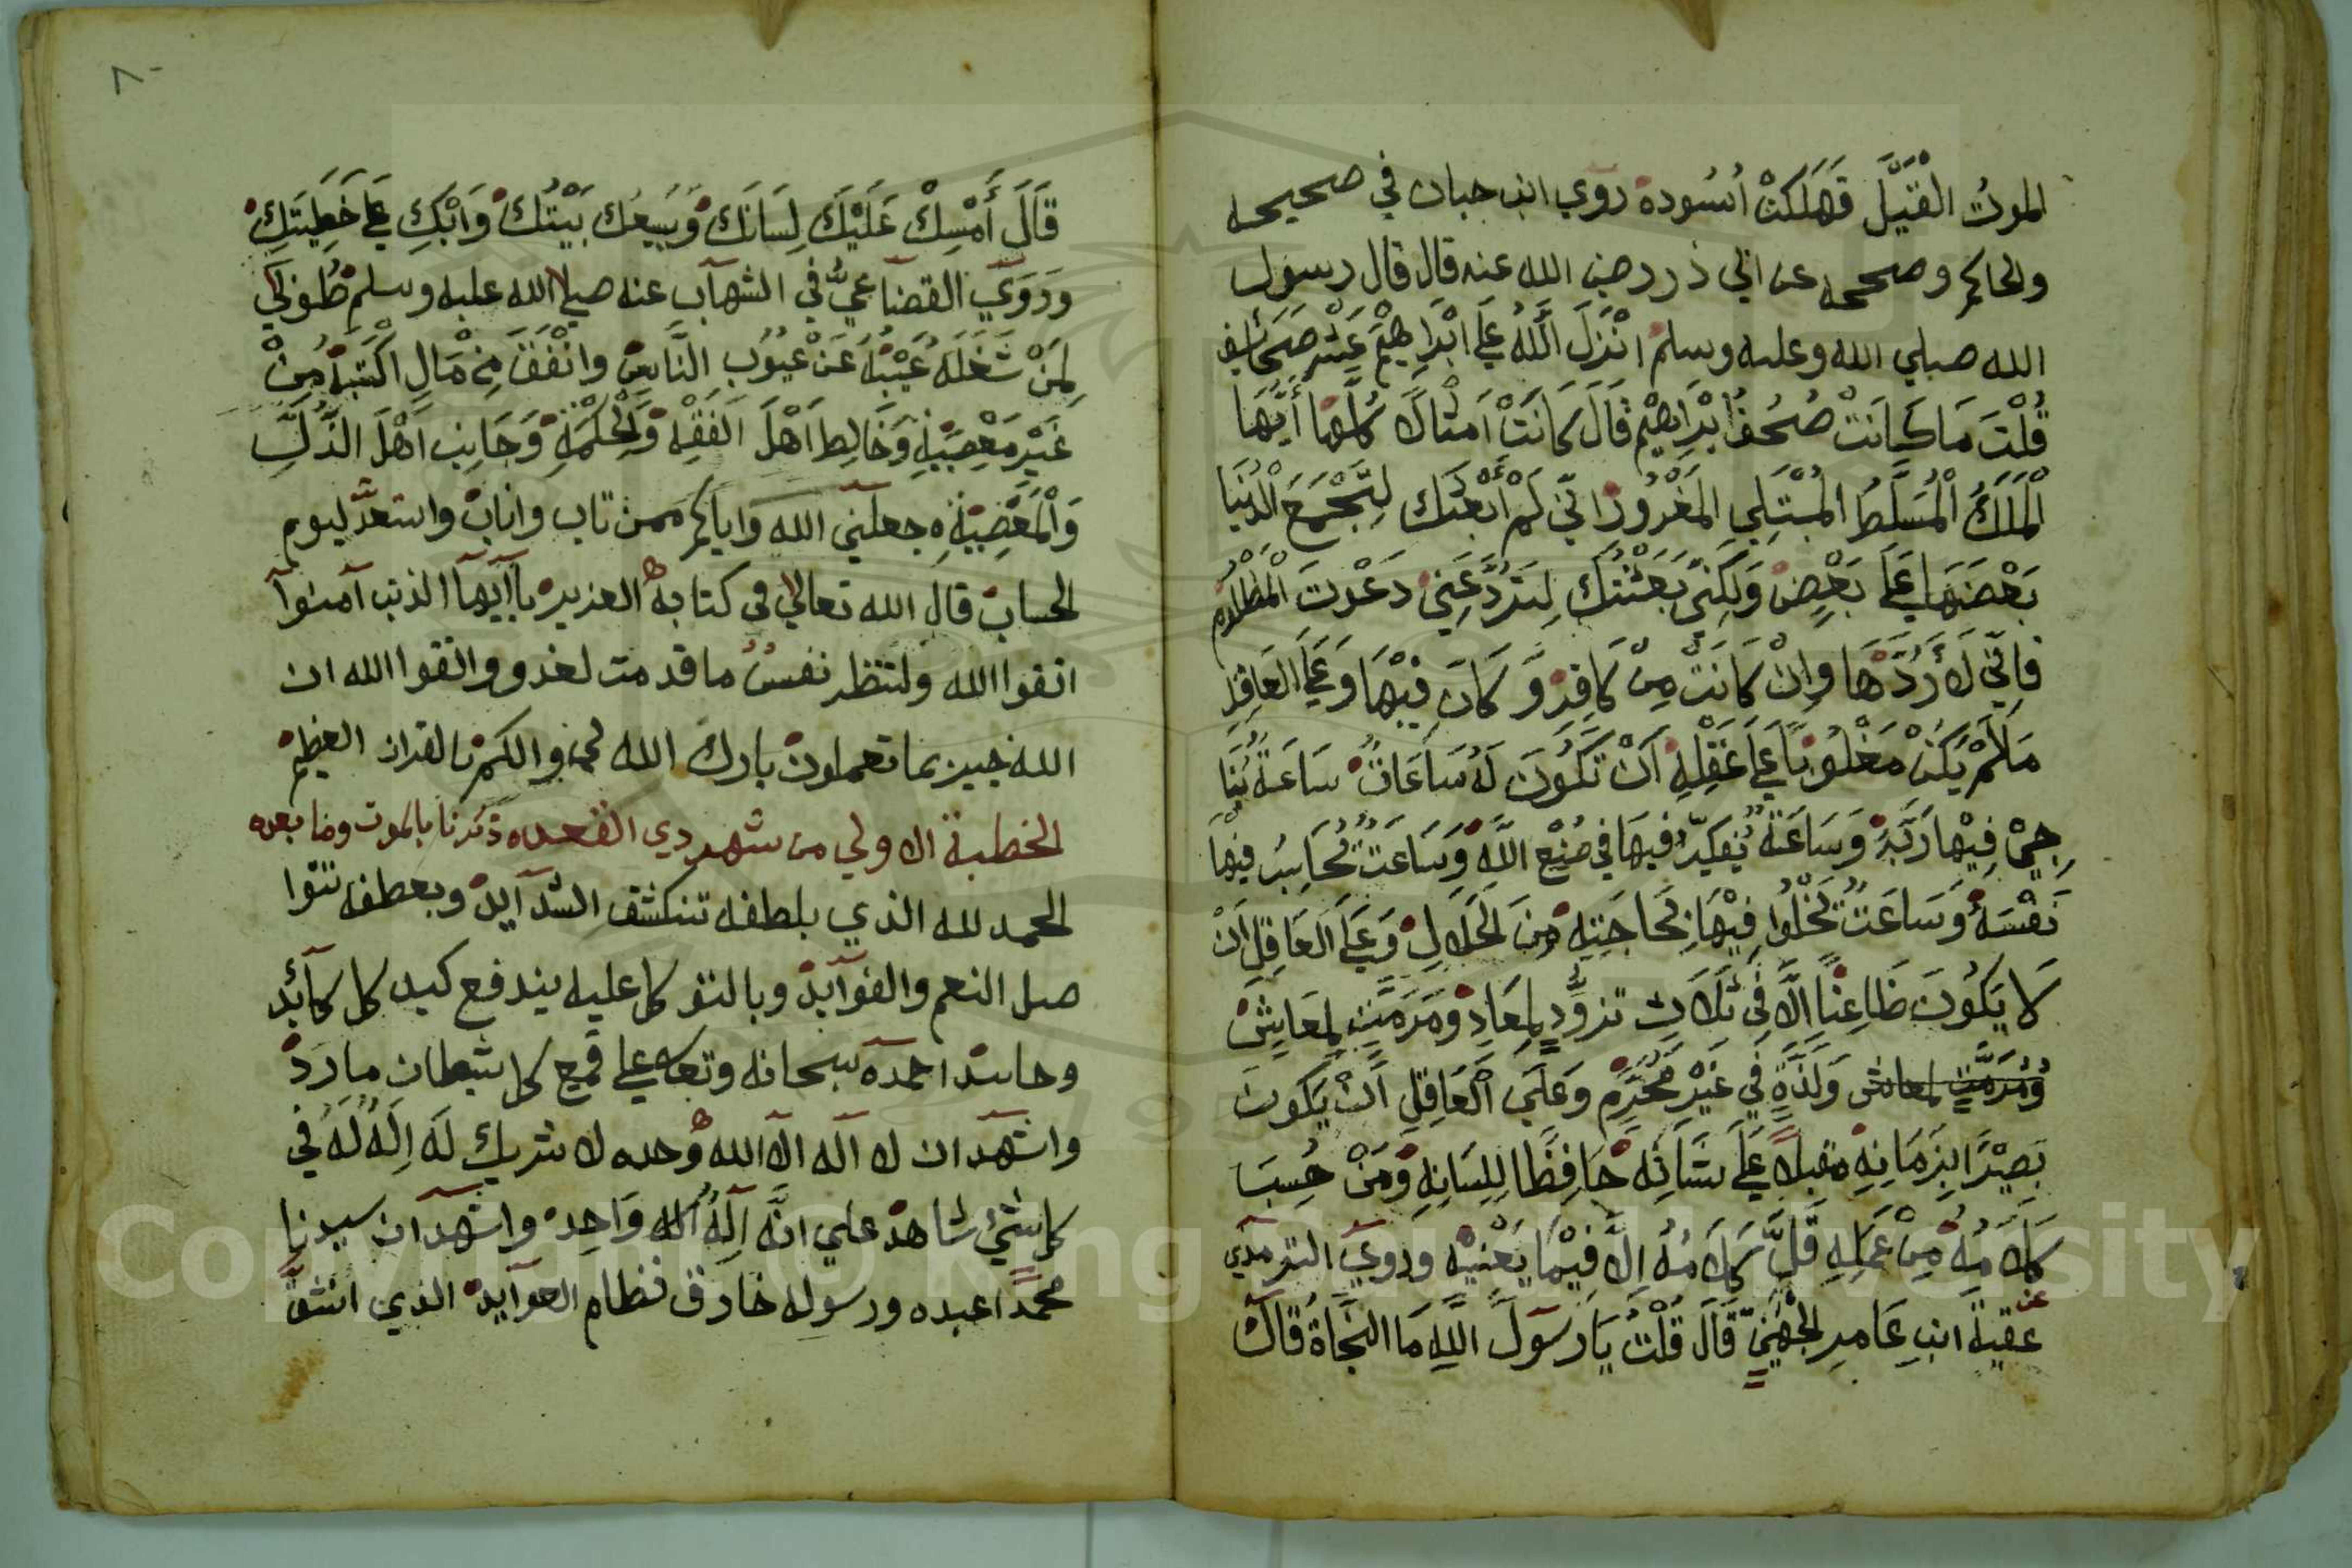 الموتُ القَيَّل فَهَلَكَتْ اُسُوده روي ابن حبان في صحيحه
والحاكم وصححه عن ابي ذر رضي الله عنه قال قال رسول
الله صلي الله وعليه وسلم انْزَلَ اللَّهُ عَلَي ابْرَاهِيْمَ عَشْرَ صَحَائِف
قُلْتَ مَا كَانَتْ صُحُفُ ابْرَاهِيْم قَالَ كَانَتْ اَمْثَالاً كُلُّهَا أَيُّهَا
الْمَلَكُ الْمُسَلَّطُ الْمُبْتَلِي الْمَغْرُورُ اِنِّي لَمْ أَبْعَثْكَ لِتَجْمَعَ الدُنْيَا
بَعْضَهَا عَلَي بَعْضٍ وَلَكِنِّي بَعَثْتُكَ لِتَرُدَّ عَنِي دَعْوتَ الْمَظْلُومِ
فَاِنِّي لاَ أَرُدُّهَا وَاِنْ كَانَتْ مِنْ كَافِرٍ وَّ كَانَ فِيْهَا وَعَلَي العَاقِلِ
مَا لَمْ يَكُنْ مَغْلُوباً عَلَي عَقْلِهِ اَنْ تَكُونَ لَهُ سَاعَاتٌ سَاعَةً يُنَا
جِيْ فِيْهَا رَبَّهُ وَسَاعَةً يُفَكِّرُ فِيهَا فِي صُنْعِ اللَّهِ وَسَاعَتٌ تُحَاسِبُ فِيْهَا
نَفْسَهُ وَسَاعَتٌ تَخْلُوا فِيْهَا لِحَاجَتِهِ مِنَ الْحَلاَلِ وَعَلَي العَاقِلِ اَنْ
لاَ يَكُونَ ظَاعِنًا اِلاَّ فِي ثَلاَثٍ تزوُّدٍ لِمَعَادٍ وَمَرَمَّتٍ لِمَعَايِشٍ
وَمُرَمَّتٍ لمعاش وَلَذَّةٍ فِي غَيْرِ مُحَرَّمٍ وَعَلَي الْعَاقِلِ اَنْ يَكونَ
بَصِيْرًا بِزَمَانِهِ مقبلاً عَلَي شَأنِهِ حَافِظًا لِلِسَانِهِ وَمَنْ حُسِبَ
كَلاَمُهُ مِنْ عَمَلِهِ قَلَّ كَلاَمُهُ اِلاَّ فِيْمَا يَعْنِيْهِ وَرَوَيَ الترمذي
عن عقبةَ ابنِ عَامرِ الجُهَنِيّ قَالَ قُلْتُ يَا رَسُولَ اللَّهِ مَا النَّجَاةُ قَالَ
٨٠
قَالَ أَمْسِكْ عَلَيْكَ لِسَانَكَ وَيَسِعُكَ بَيْتُكَ وَابْكِ عَلَي خَطِيئَتِكَ
وَرَوَيَ القضاعيُّ في الشهاب عنه صلي الله عليه وسلم طُوبَي
لِمَنْ شَغَلَهُ عَيْبُهُ عَنْ عُيُوبِ النَّاسِ وانْفَقَ مِنْ مَالٍ اكْتَسَبَهُ مِنْ
غَيْرِ مَعْصِيَةٍ وَخَالَطَ اَهْلَ الفِقْهِ وَالْحِكْمَةِ وَجَانِبَ اَهْلَ الذُّلِّ
وَالْمَعْصِيَةِ ه جعلني الله واياكم ممن تاب واناب واستعدَّ ليوم
الحساب قال الله تعالي في كتابه العزيز ياآيها الذين آمنوا
اتقوا الله ولتنظر نفسٌ ما قدمت لغد واتقوا الله ان
الله خبير بما تعملون بارك الله لي ولكم بالقران العظيم
الخطبة الاولي من شهر دي القعده ذكرنا بالموت وما بعده
الحمد لله الذي بلطفه تنكشف الشدآيد وبعطفه تتوا
صل النعم والفوآيد وبالتوكل عليه يندفع كيد كل كآئد
وحاسد احمده سبحانه وتعالي علي قمع كل شيطان مارد
واشهد ان لا اله الا الله وحده لا شريك لَه اِلَهٌ لَهُ في
كل شيْ شاهد علي انَّه اِلَهٌ وَاحِد واشهد ان سيدنا
محمداً عبده ورسوله خارق نظام العوآيد الذي انشقَّ